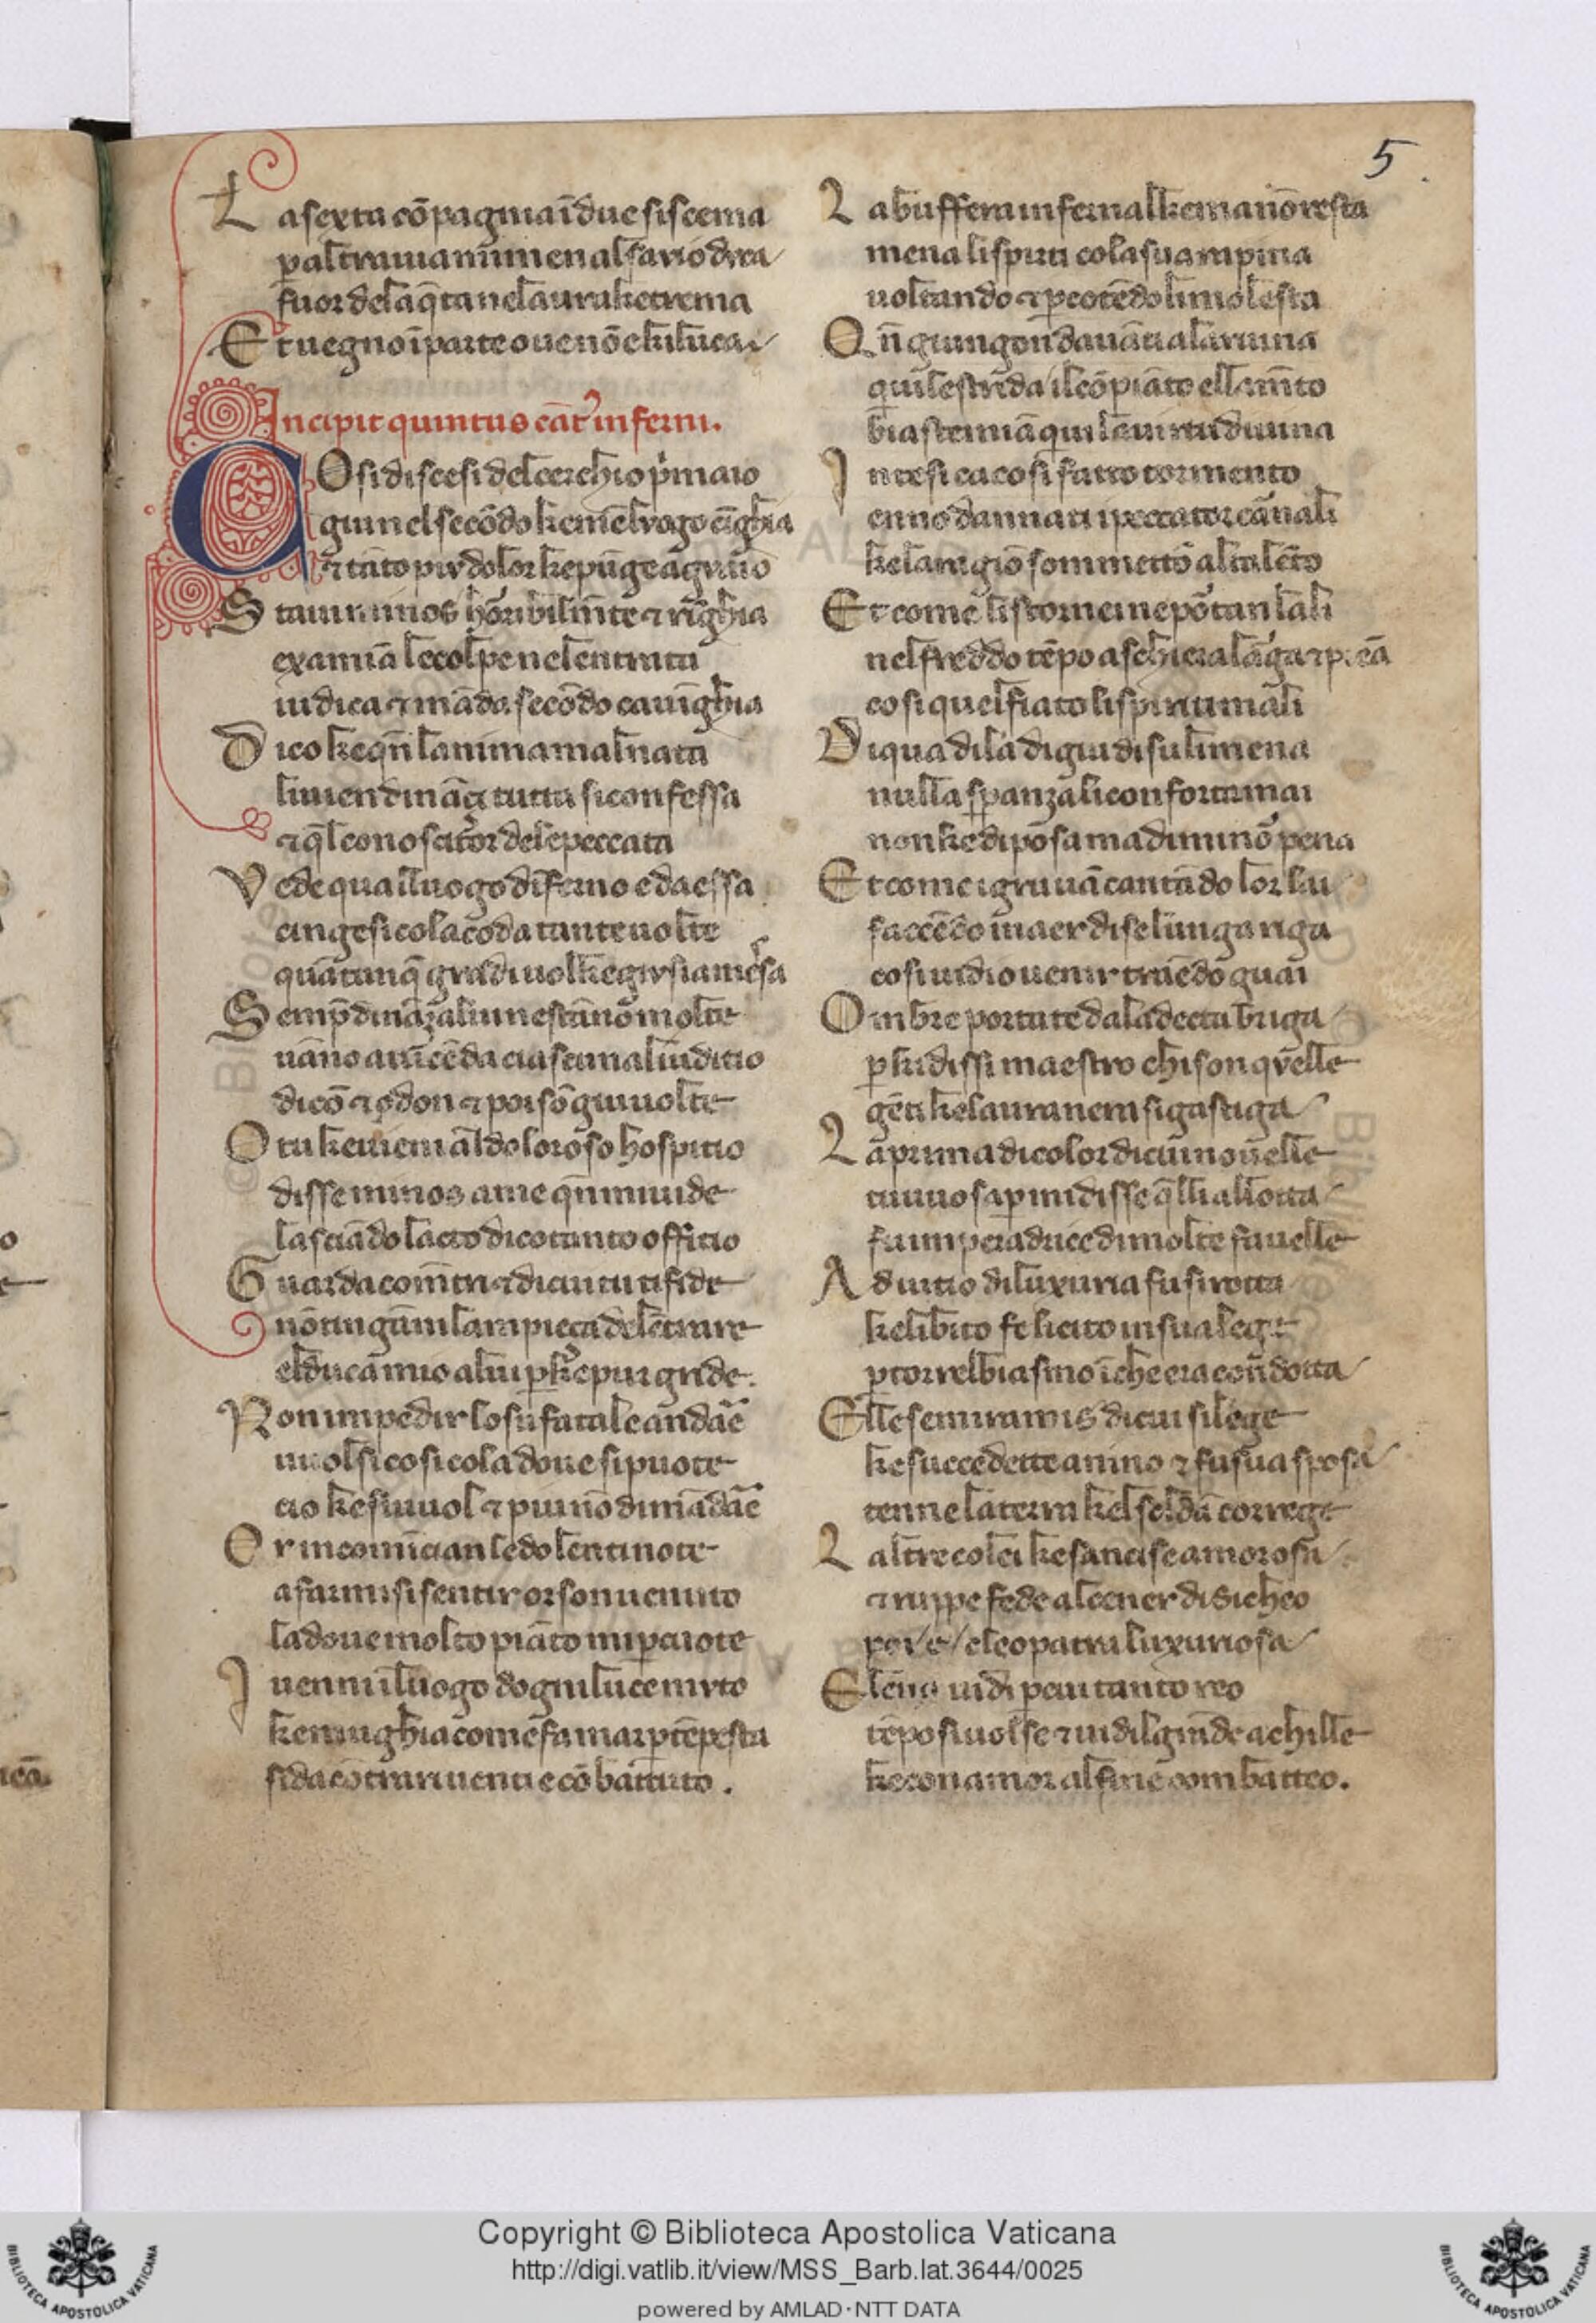 5
La sexta cōpagnia ī due si scema
p altra uia mi mena l sauio duca
fuor de la q̄ta ne l aura ke trema
Et uegno ī parte oue nō e ki luca
Incipit quintus cāt' inferni.
COsi discesi del cerchio p'maio
giu nel secōdo ke mē luogo cīghia
⁊ tāto piu dolor ke pūge a guaio
Staui minos horribilm̄te ⁊ rīghia
examīa le colpe ne l entrata
iudica ⁊ māda secōdo cauīghia
Dico ke qn̄ l anima mal nata
li uien dināçi tutta si confessa
⁊ q̄l conoscitor de le peccata
Vede qua l luogo dīferno e da essa
cinge si co la coda tante uolte
quātunq̄ gradi uol ke giu sia messa
Semp̄ dināzi a lui ne stāno molte
uāno a uicēda ciascuna al iuditio
dicō ⁊ odon ⁊ poi sō giu uolte
O tu ke uieni al doloroso hospitio
disse minos a me qn̄ mi uide
lasciādo l acto di cotanto offitio
Guarda com ētri ⁊ di cui tu ti fide
nō t ingāni l ampieça de l ētrare
el duca mio a lui p kē pur gride.
Non impedir lo su fatale andāe
uuolsi cosi cola doue si puote
cio ke si uuol ⁊ piu nō dimādāe
Or incomīcian le dolenti note
a farmi si sentir or son uenuto
la doue molto piāto mi percuote
I uenni ī luogo d ogni luce muto
ke mughia come fa mar p tēpesta
si da cōtrari uenti e cōbattuto.
La buffera infernal ke mai nō resta
mena li spirti co la sua rapina
uoltando ⁊ peotēdo li molesta
Qn̄ giungon dauāti a la ruina
quī le strida il cōpiāto el lam̄to
biastemiā qui la uirtu diuina
Intesi ca cosi fatto tormento
enno dannati i peccator carnali
ke la ragiō sommettō al talēto
Et come li stornei ne portan l ali
nel freddo tēpo a schiera larga ⁊ piēa
cosi quel fiato li spiriti mali
Di qua di la di giu di su li mena
nulla speranza li conforta mai
non ke di posa ma di minor pena
Et come i gru uā cantādo lor lai
faccēdo in aer di se lunga riga
cosi uidi o uenir traēdo guai
Ombre portate da la decta briga
p ki dissi maestro chi son quelle
gēti ke l aura nera si gastiga
La prima di color di cui nouelle
tu uuo saper mi disse q̄lli allotta
fu imperadrice di molte fauelle
Ad uitio di luxuria fu si rotta
ke libito fe licito in sua lege
p torre l biasmo ī che era condotta
Elle semiramis di cui si lege
ke succedette a nino ⁊ fu sua sposa
tenne la terra ke l soldā correge
L altre colei ke s ancise amorosa
⁊ ruppe fede al cener di sicheo
poi e cleopatra luxuriosa
Elena uidi per cui tanto reo
tēpo si uolse ⁊ uidi l grāde achille
ke con amor al fine combatteo.
Copyright © Biblioteca Apostolica Vaticana
http://digi.vatlib.it/view/MSS_Barb.lat.3644/0025
powered by AMLAD·NTT DATA